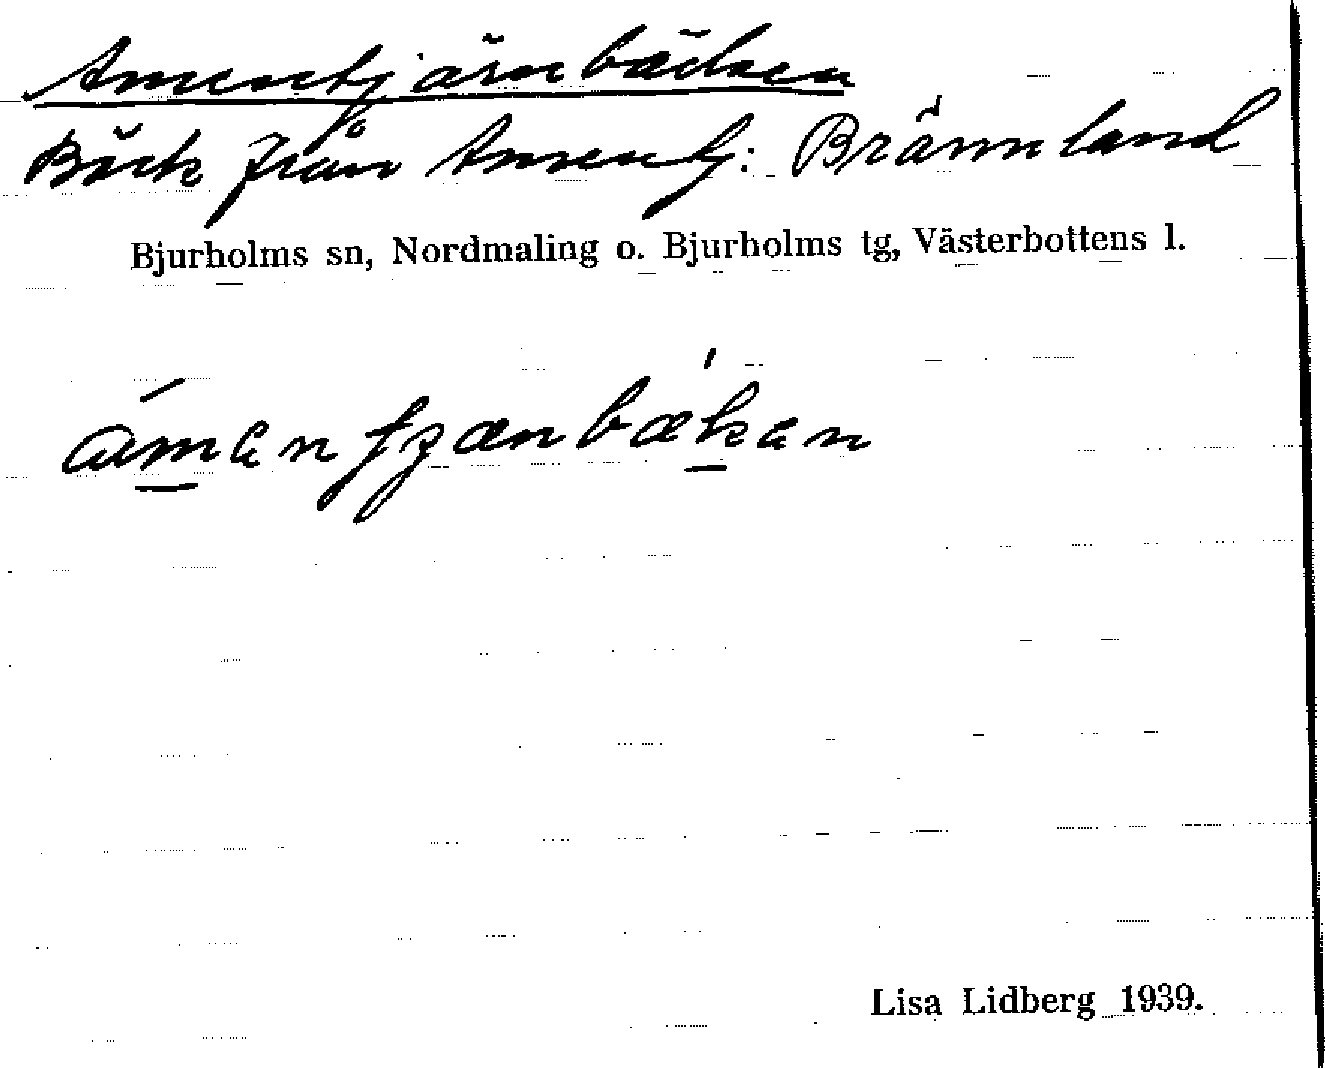 Amentjärnbäcken
Bäck från Amentj: Brännland
Bjurholms sn, Nordmaling o. Bjurholms tg, Västerbottens l.
Lisa Lidberg 1939.